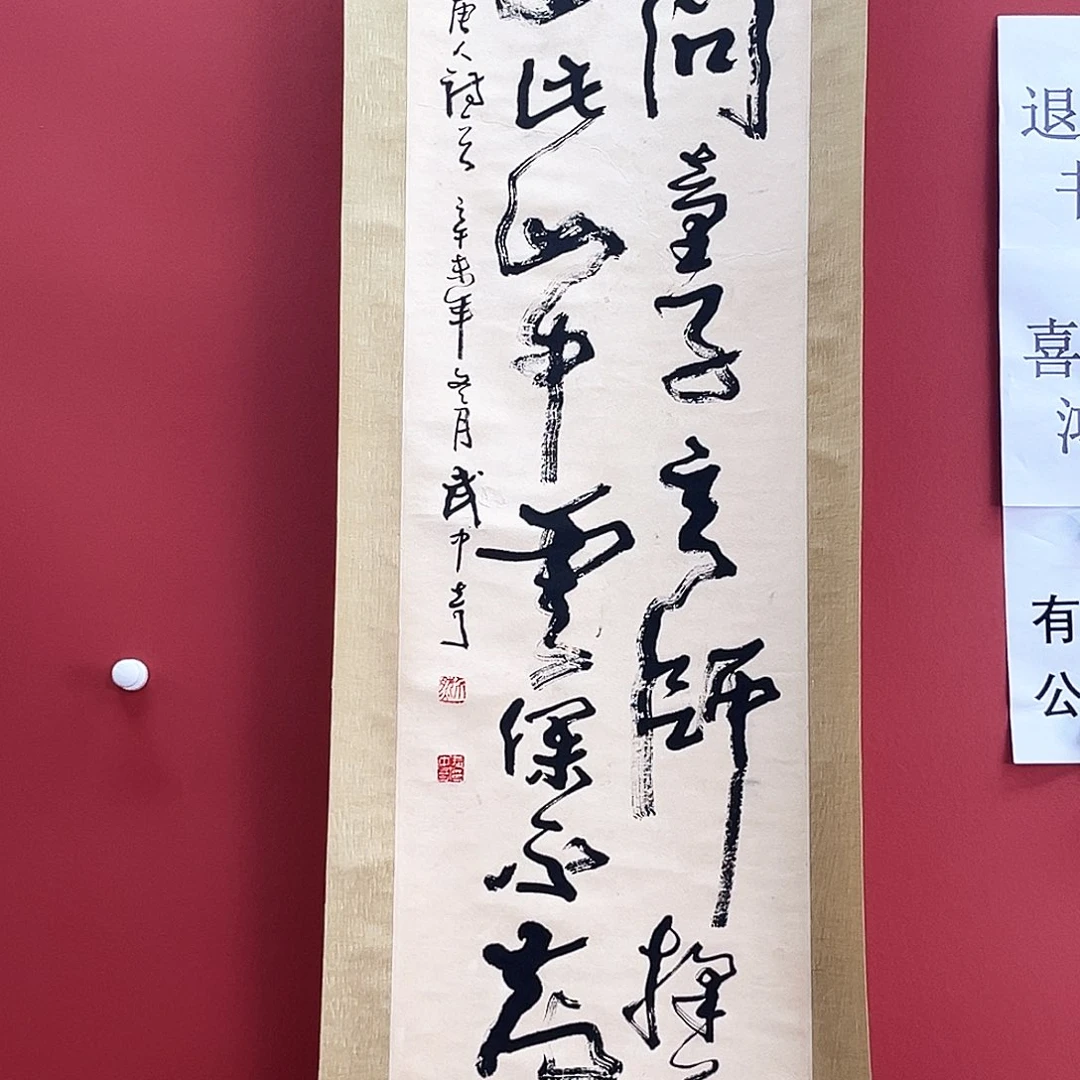 問童子言師採
此山中雲深不知
唐人詩 辛未年冬月 武中奇
退
喜
有
公